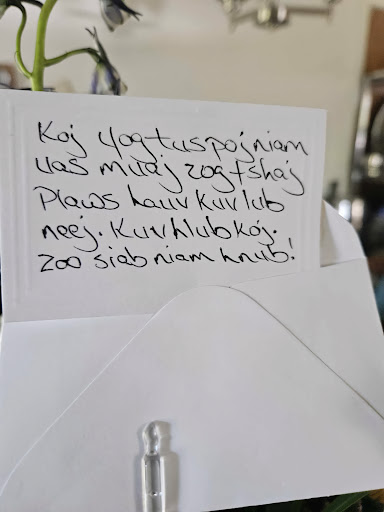 Koj yog tus pojniam
uas muaj zog tshaj
Plaws hauv kuv lub
neej. Kuv hlub koj.
Zoo siab niam hnub!